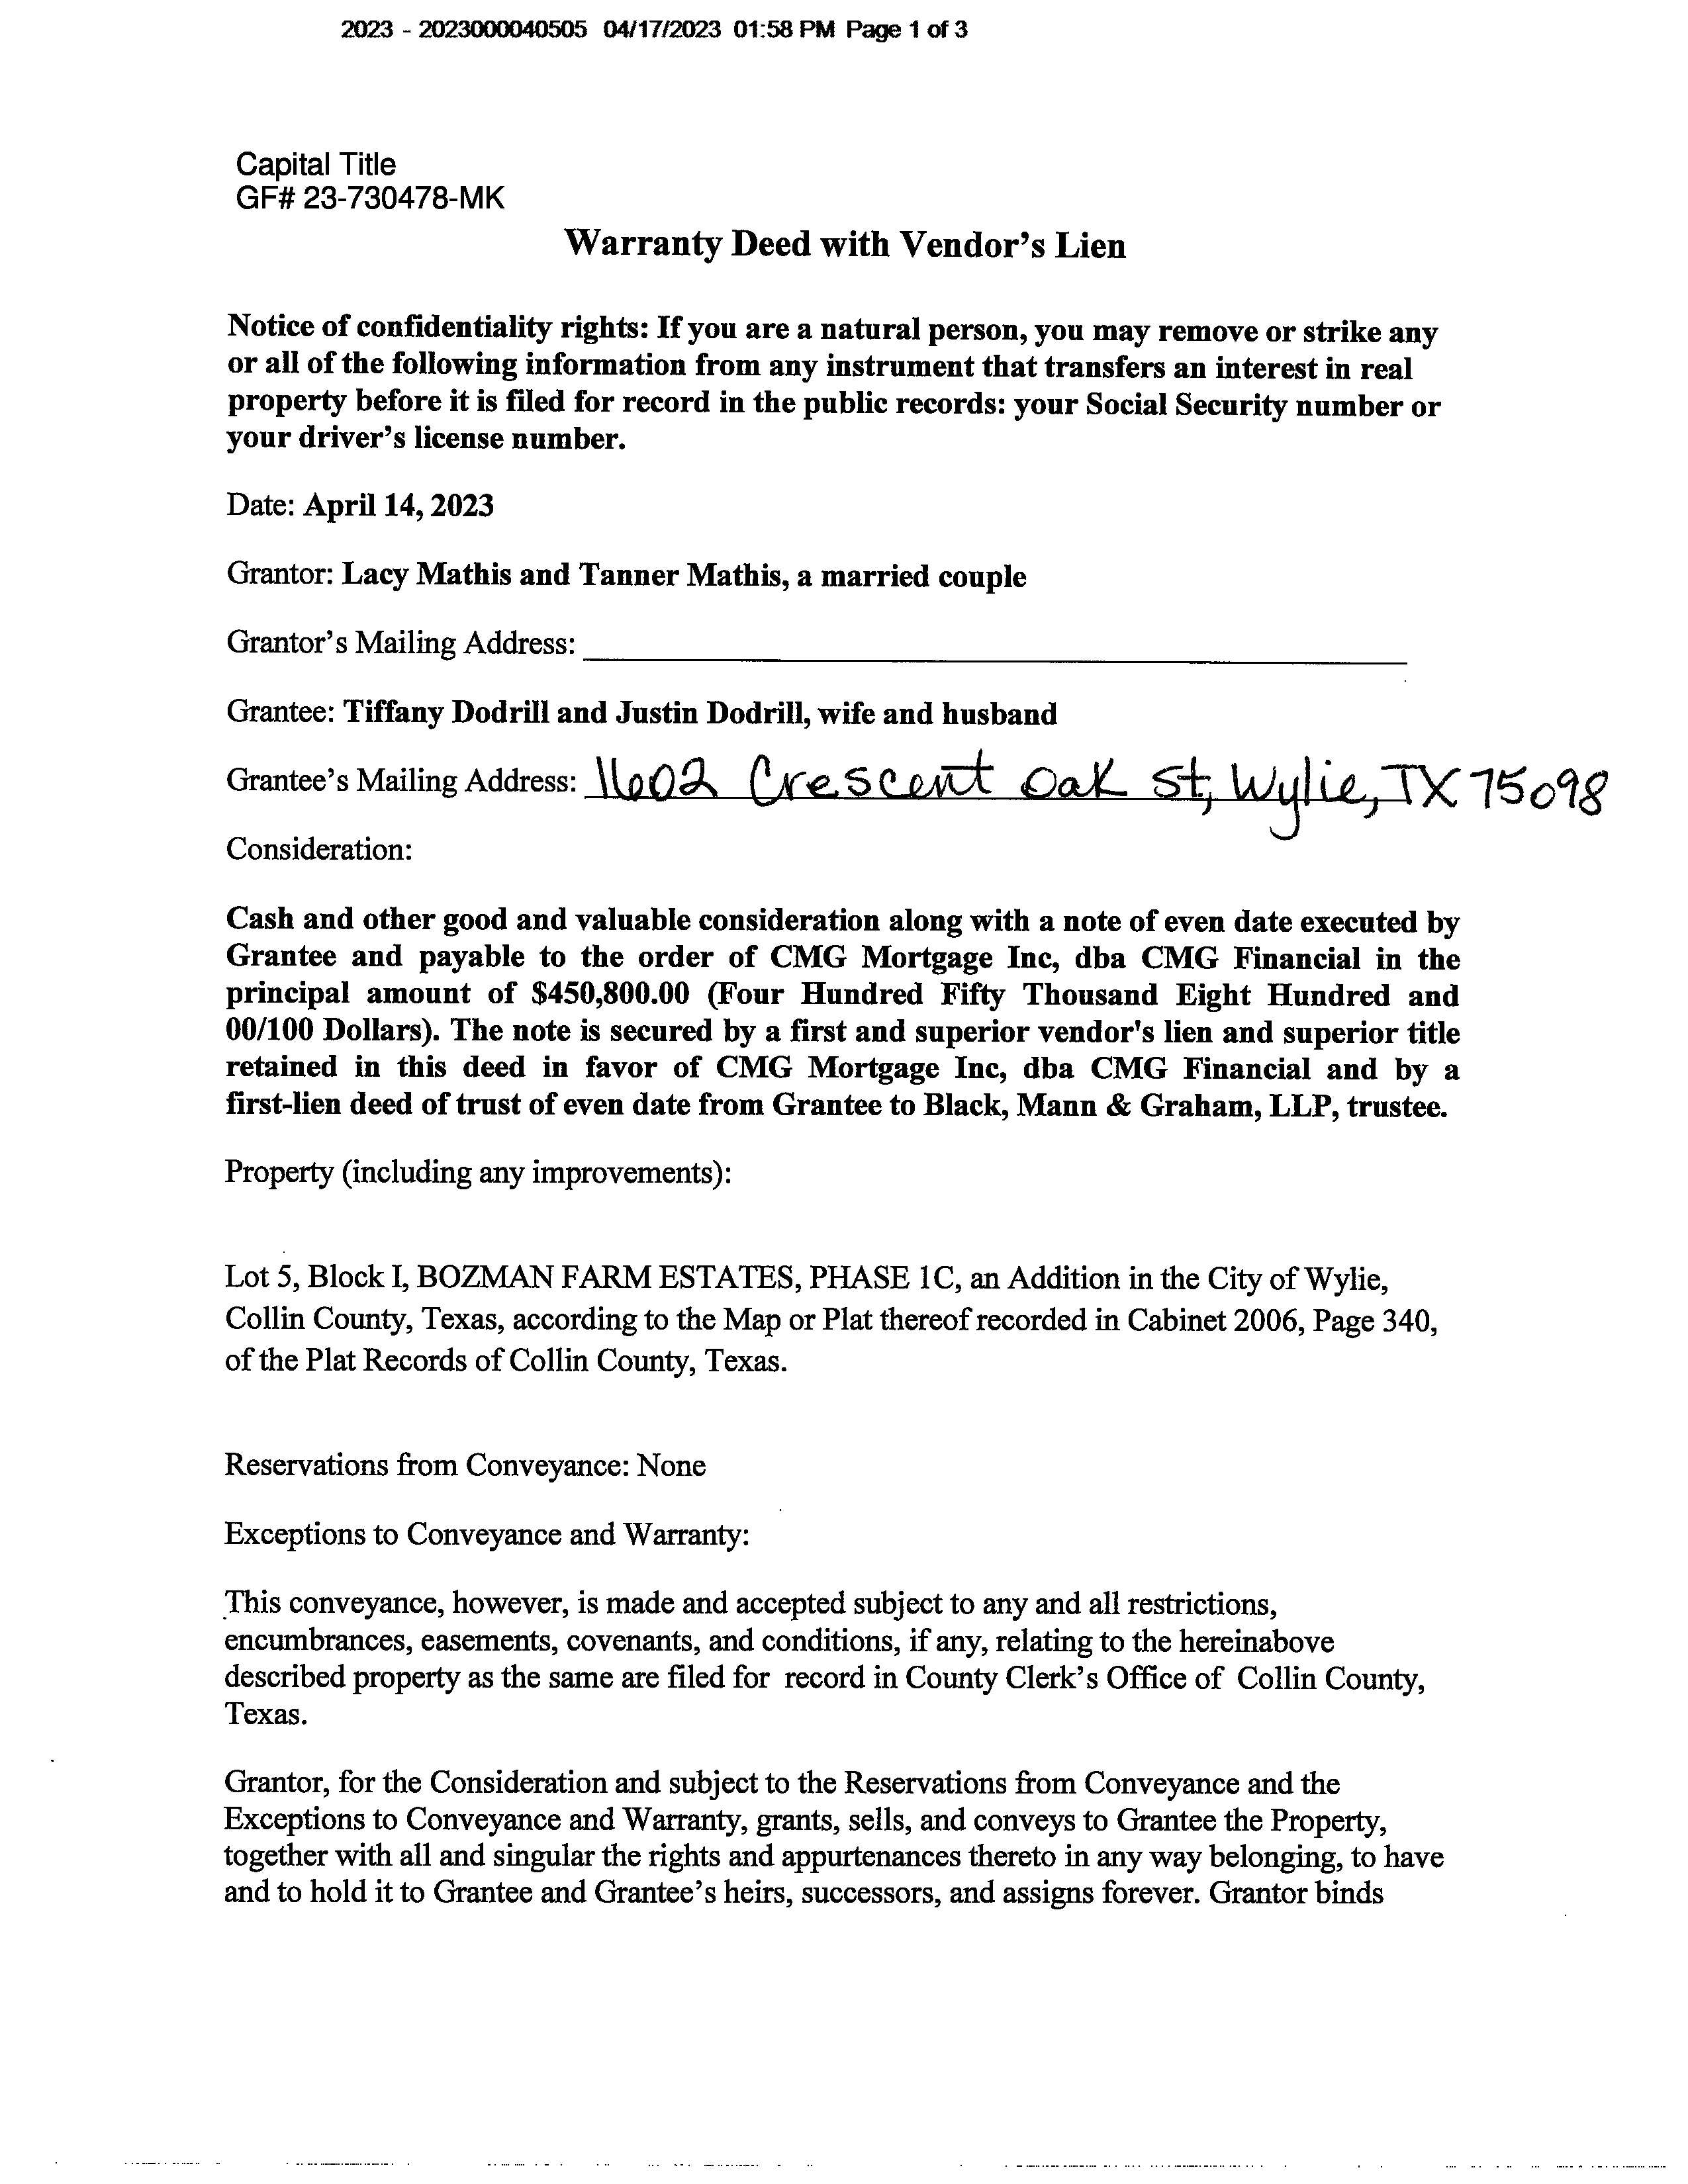 2023 - 2023000040505 04/17/2023 01:58 PM Page 1 of 3
Capital Title
GF# 23-730478-MK
Warranty Deed with Vendor's Lien
Notice of confidentiality rights: If you are a natural person, you may remove or strike any
or all of the following information from any instrument that transfers an interest in real
property before it is filed for record in the public records: your Social Security number or
your driver's license number.
Date: April 14, 2023
Grantor: Lacy Mathis and Tanner Mathis, a married couple
Grantor's Mailing Address:
Grantee: Tiffany Dodrill and Justin Dodrill, wife and husband
Grantee's Mailing Address: 1602 Crescent Oak St, Wylie, TX 75098
Consideration:
Cash and other good and valuable consideration along with a note of even date executed by
Grantee and payable to the order of CMG Mortgage Inc, dba CMG Financial in the
principal amount of $450,800.00 (Four Hundred Fifty Thousand Eight Hundred and
00/100 Dollars). The note is secured by a first and superior vendor's lien and superior title
retained in this deed in favor of CMG Mortgage Inc, dba CMG Financial and by a
first-lien deed of trust of even date from Grantee to Black, Mann & Graham, LLP, trustee.
Property (including any improvements):
Lot 5, Block I, BOZMAN FARM ESTATES, PHASE 1C, an Addition in the City of Wylie,
Collin County, Texas, according to the Map or Plat thereof recorded in Cabinet 2006, Page 340,
of the Plat Records of Collin County, Texas.
Reservations from Conveyance: None
Exceptions to Conveyance and Warranty:
This conveyance, however, is made and accepted subject to any and all restrictions,
encumbrances, easements, covenants, and conditions, if any, relating to the hereinabove
described property as the same are filed for record in County Clerk's Office of Collin County,
Texas.
Grantor, for the Consideration and subject to the Reservations from Conveyance and the
Exceptions to Conveyance and Warranty, grants, sells, and conveys to Grantee the Property,
together with all and singular the rights and appurtenances thereto in any way belonging, to have
and to hold it to Grantee and Grantee's heirs, successors, and assigns forever. Grantor binds